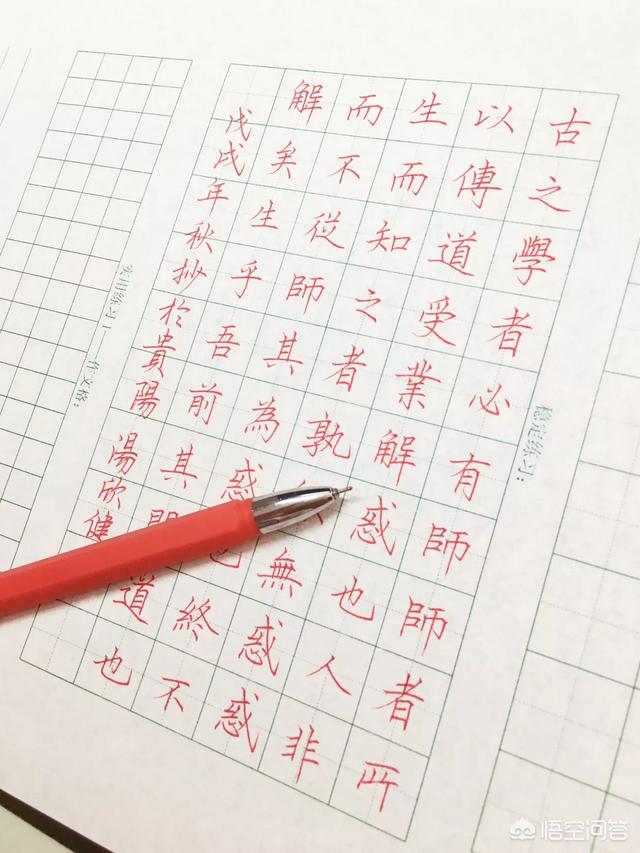 稳定练习：
古之學者必有師師者所
以傳道受業解惑也人非
生而知之者孰無惑惑
而不從師其為惑也終不
解矣生乎吾前其道也
戊戌年秋抄於貴陽 湯欣健
实用练习1——作文格：
悟空问答